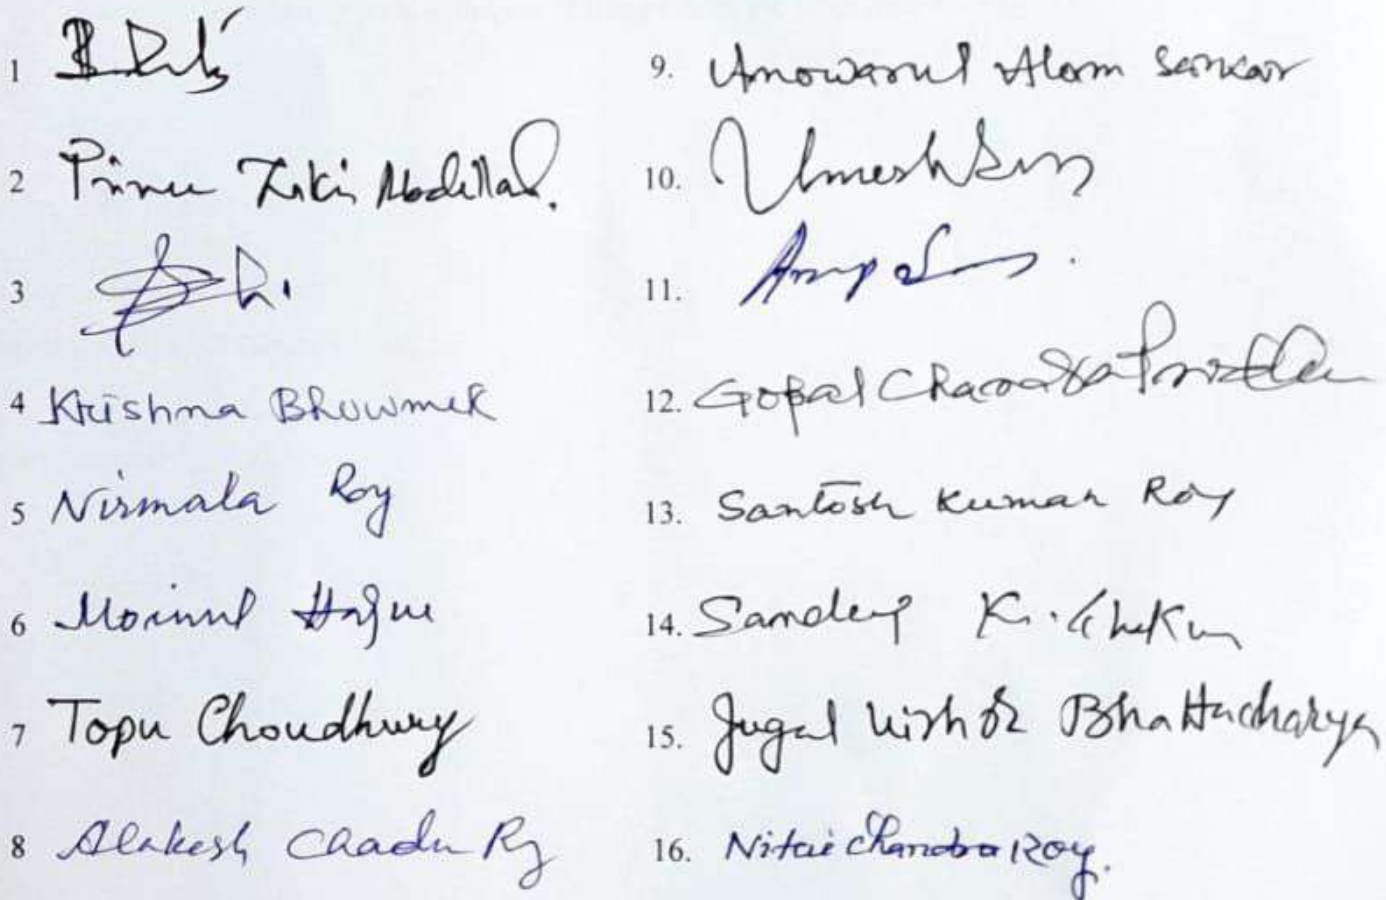 1
2 Prince Zaki Abdullah.
3
4 Krishna Bhowmik
5 Nirmala Roy
6 Moinul Haque
7 Topu Choudhury
8 Alakesh Chandra Roy
9. Anowarul Alam Sarkar
10. Umesh
11. Anup
12. Gopal Chandra
13. Santosh Kumar Roy
14. Sandeep Kr.
15. Jugal Kishor Bhattacharya
16. Nitai Chandra Roy.